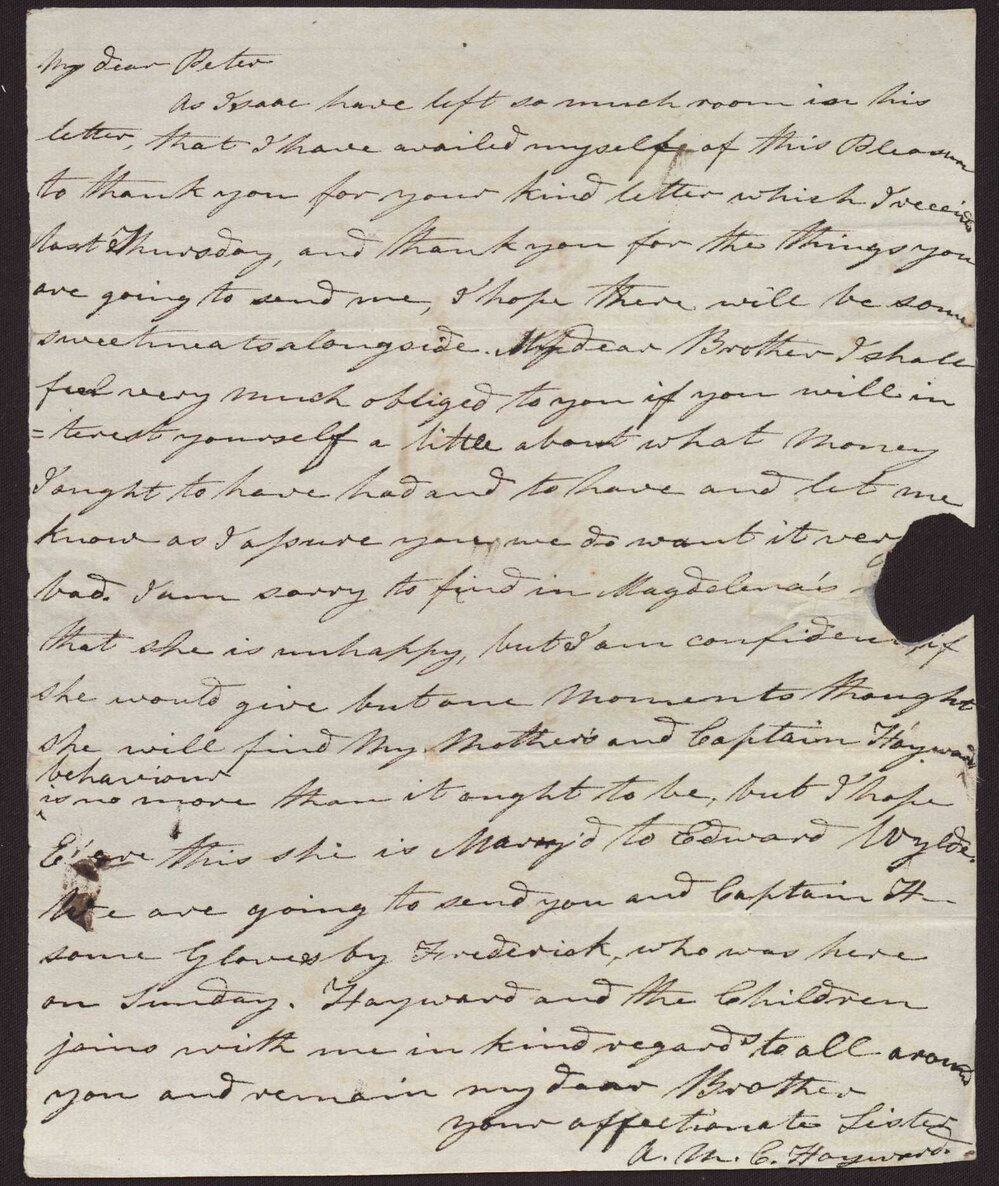 My dear Peter
As Isaac have left so much room in his
letter, that I have availed myself of this Pleasure
to thank you for your kind letter which I receiv'd
last Thursday, and thank you for the things you
are going to send me, I hope there will be some
sweetmeats alongside. My dear Brother I shall
feel very much obliged to you if you will in
=terest yourself a little about what Money
I ought to have had and to have and let me
know as I assure you we do want it very
bad. I am sorry to find in Magdelena's
that she is unhappy, but I am confident, if
she would give but one moments thought
she will find My Mother's and Captain Hayward
behaviour
is no more than it ought to be, but I hope
E'are this she is Marry'd to Edward Wylde.
We are going to send you and Captain H—
some Gloves by Frederick, who was here
on Sunday. Hayward and the Children
joins with me in kind regards to all around
you and remain my dear Brother
your affectionate Sister
A. M. C. Hayward.